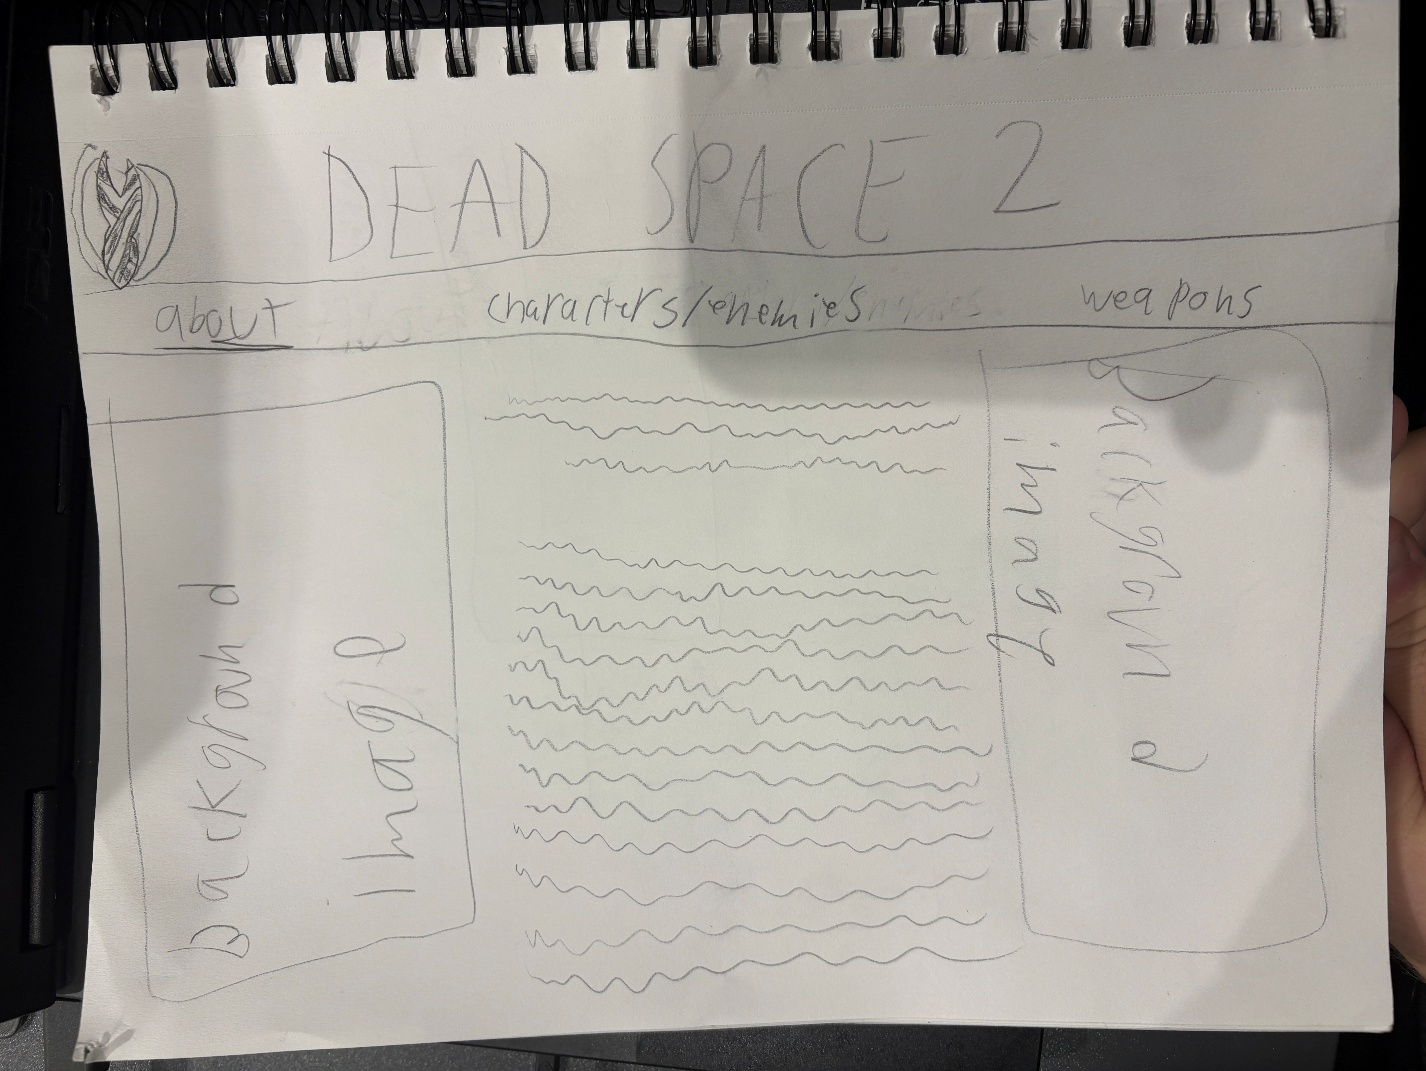 DEAD SPACE 2
about characters/enemies weapons
background
image
background
imag